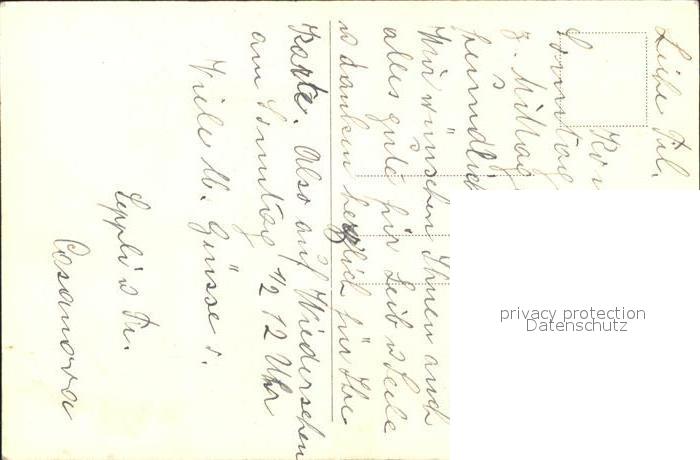 Liebe Frl.
Sonntag
z. Mittag
freundlich
Wir wünschen Ihnen auch
alles gute für Leib u Seele
u danken herzlich für Ihre
Karte. Also auf Wiedersehen
am Sonntag 1/2 12 Uhr
Viele M. Grüsse v.
Seppli u Fr.
Casanova
privacy protection
Datenschutz